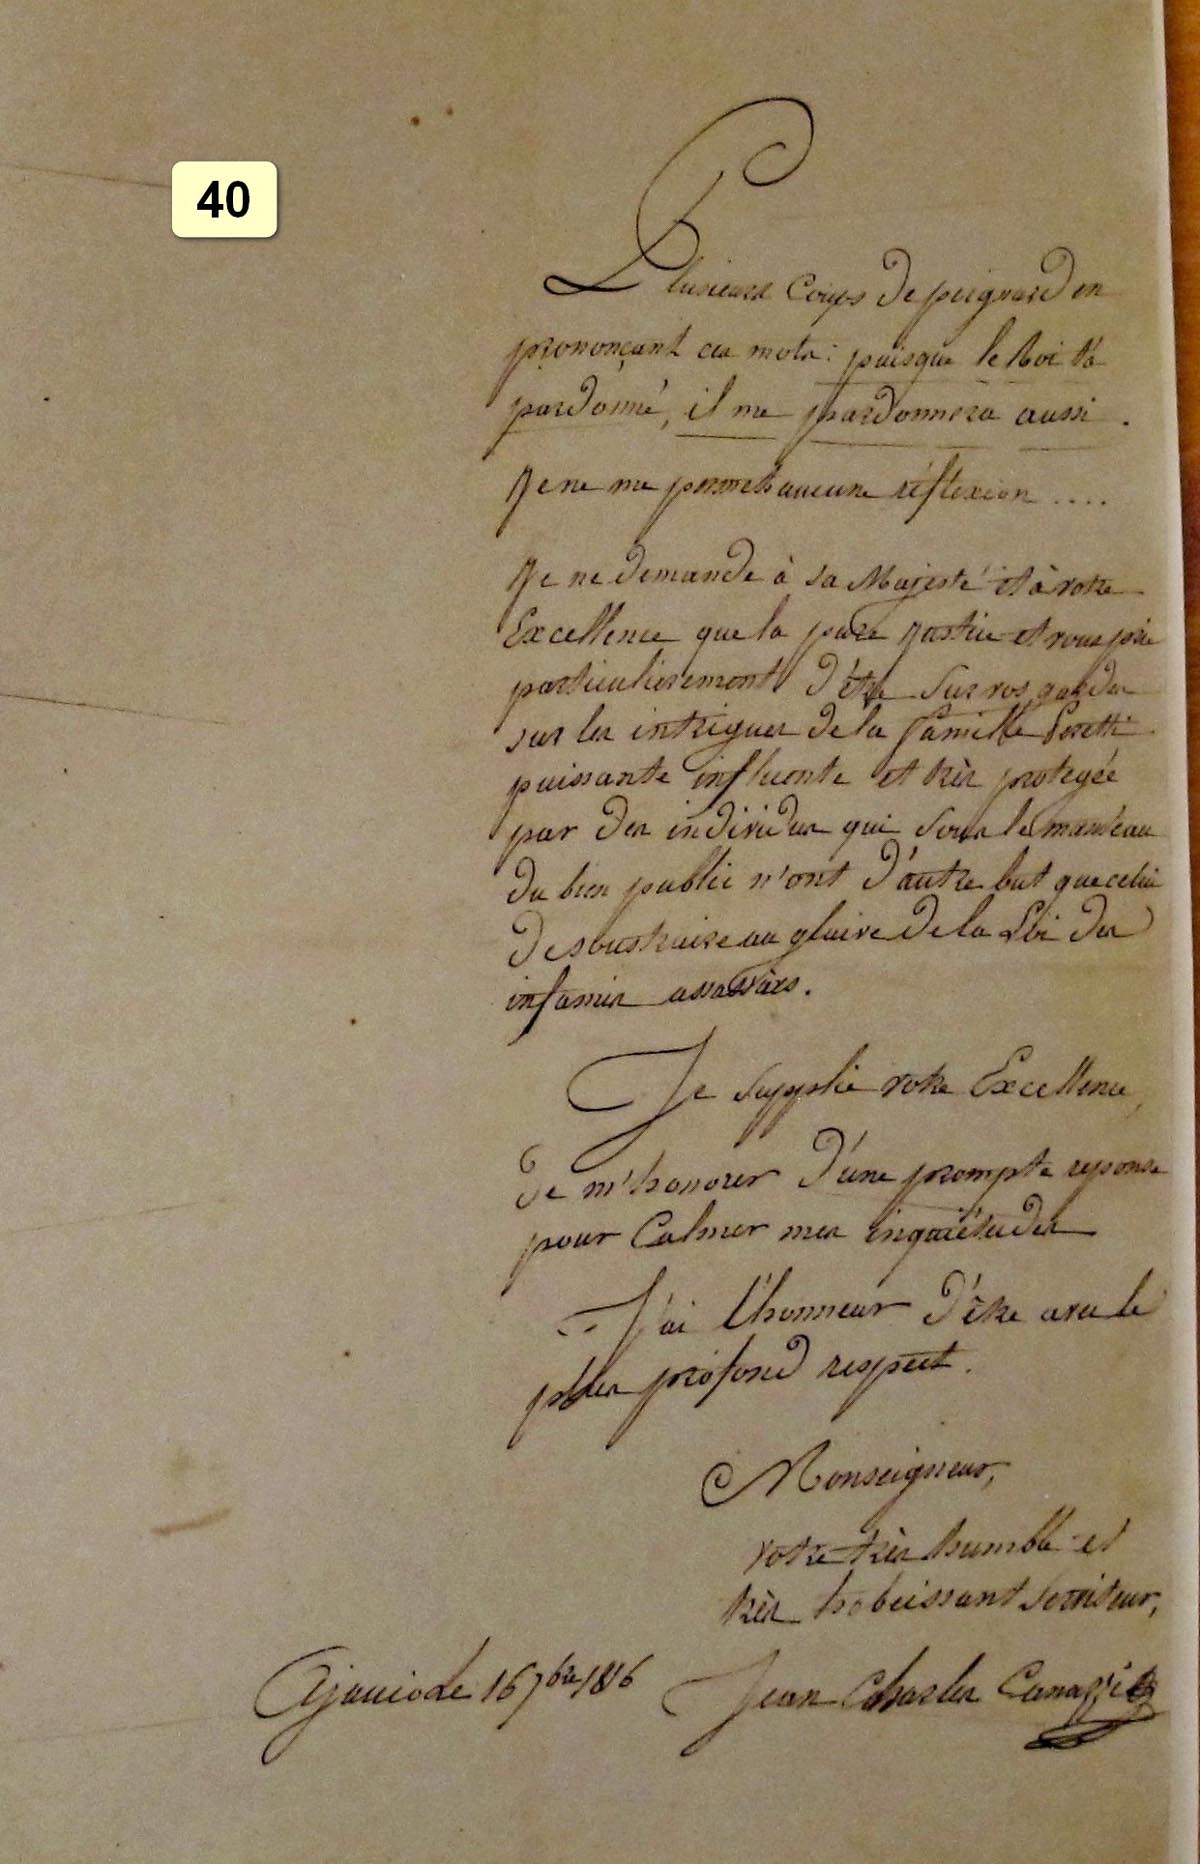 40
Plusieurs Coups de poignard en
prononçant ces mots: puisque le Roi t'a
pardonné, il me pardonnera aussi.
Je ne me permets aucune réflexion ....
Je ne demande à sa Majesté et à votre
Excellence que la pure justice et vous prie
particulierement d'être Sur vos gardes
sur les intrigues de la famille Peretti
puissante influente et très protegée
par des individus qui Sous le manteau
du bien public n'ont d'autre but que celui
de soustraire au glaive de la Loi des
infamies assassins.
Je Supplie votre Excellence,
de m'honorer d'une prompte reponse
pour Calmer mes inquiétudes
J'ai l'honneur d'être avec le
plus profond respect.
Monseigneur,
votre très humble et
très hobeissant Serviteur,
Ajaccio le 16 7bre 1816 Jean Charles